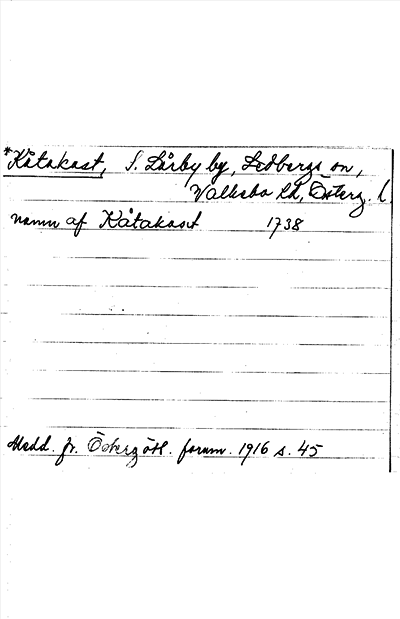 *Kåtakast, S. Lårby by, Ledbergs sn,
Valkebo hd, Österg. l.
namn af Kåtakast 1738
Medd. fr. Östergötl. fornm. 1916 s. 45